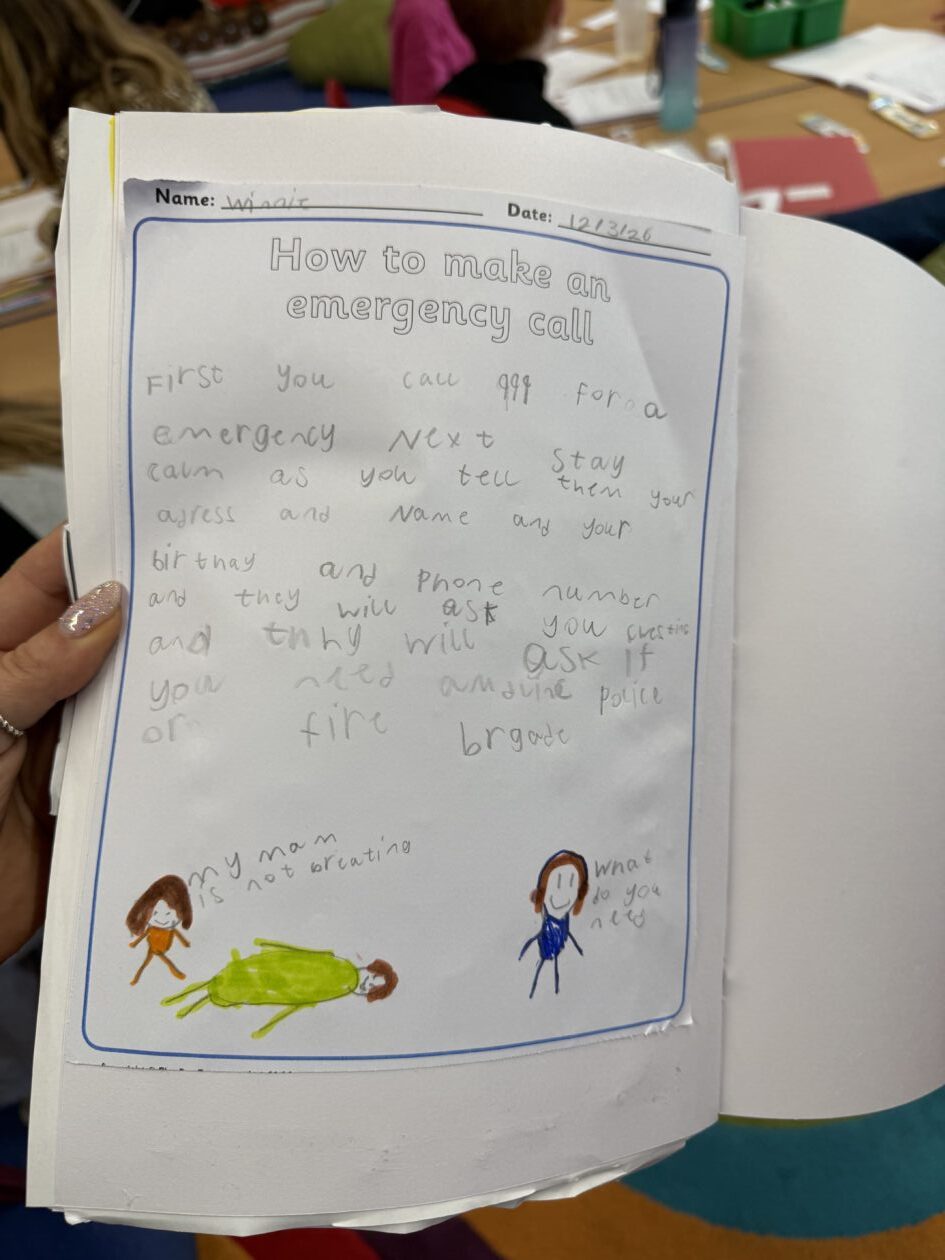 Name: Winnie
Date: 12/3/26
How to make an
emergency call
First you call 999 for a
emergency Next Stay
calm as you tell them your
adress and Name and your
birthay and Phone number
and they will ask you
and thhy will ask if
you need police
or fire brgade
my mam
is not breating
What
do you
need